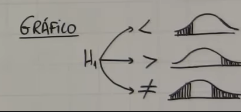 GRÁFICO
<
H₁ >
≠